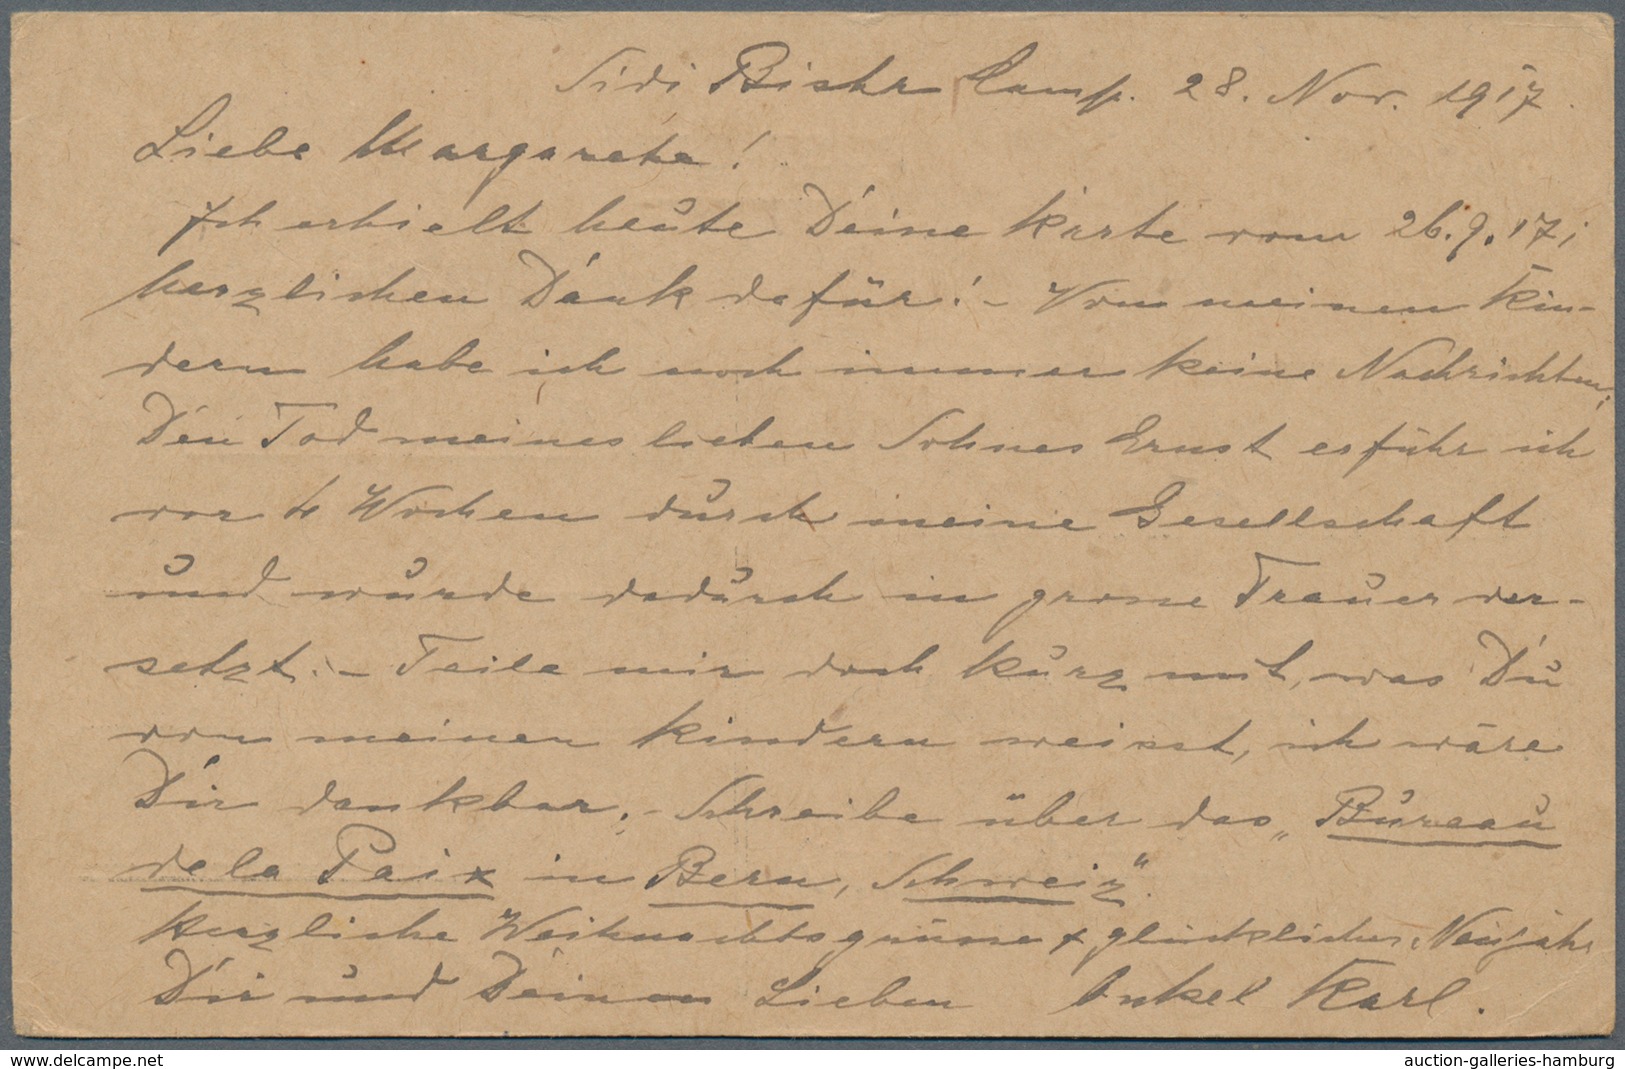 Sidi Bishr Camp. 28. Nov. 1917.
Liebe Margarethe!
Ich erhielt heute Deine Karte vom 26.9.17;
herzlichen Dank dafür! - Von meinen Kin-
dern habe ich noch immer keine Nachrichten;
Den Tod meines lieben Sohnes Ernst erfuhr ich
vor 4 Wochen durch meine Gesellschaft
und wurde dadurch in grosse Trauer ver-
setzt. - Teile mir doch kurz mit, was Du
von meinen Kindern weisst, ich wäre
Dir dankbar. - Schreibe über das „Bureau
de la Paix in Bern, Schweiz".
Herzliche Weihnachtsgrüsse + glückliches Neujahr
Dir und Deinen Lieben Onkel Karl.
www.delcampe.net
auction-galleries-hamburg